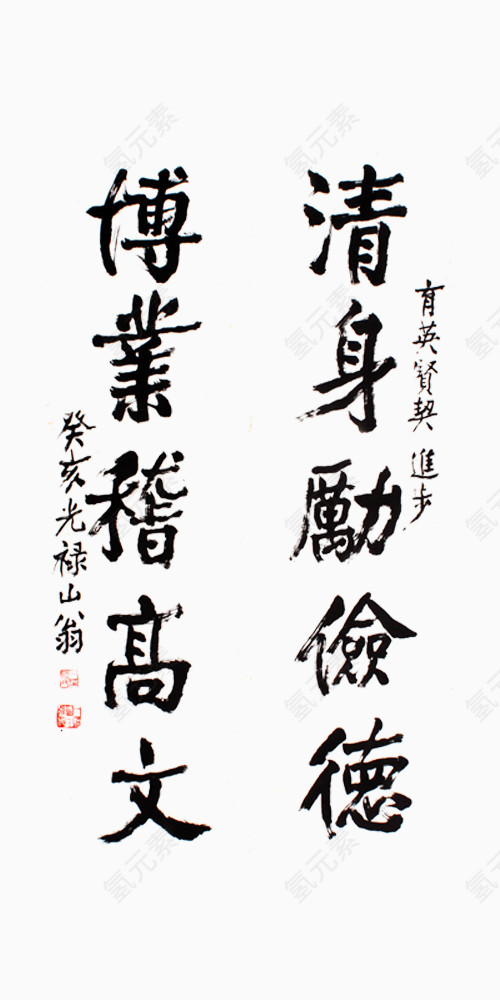 育英賢契 進步
清身勵儉德
博業稽高文
癸亥光禄山翁
氢元素